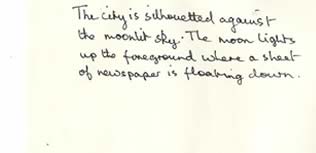 The city is silhouetted against
the moonlit sky. The moon lights
up the foreground where a sheet
of newspaper is floating down.